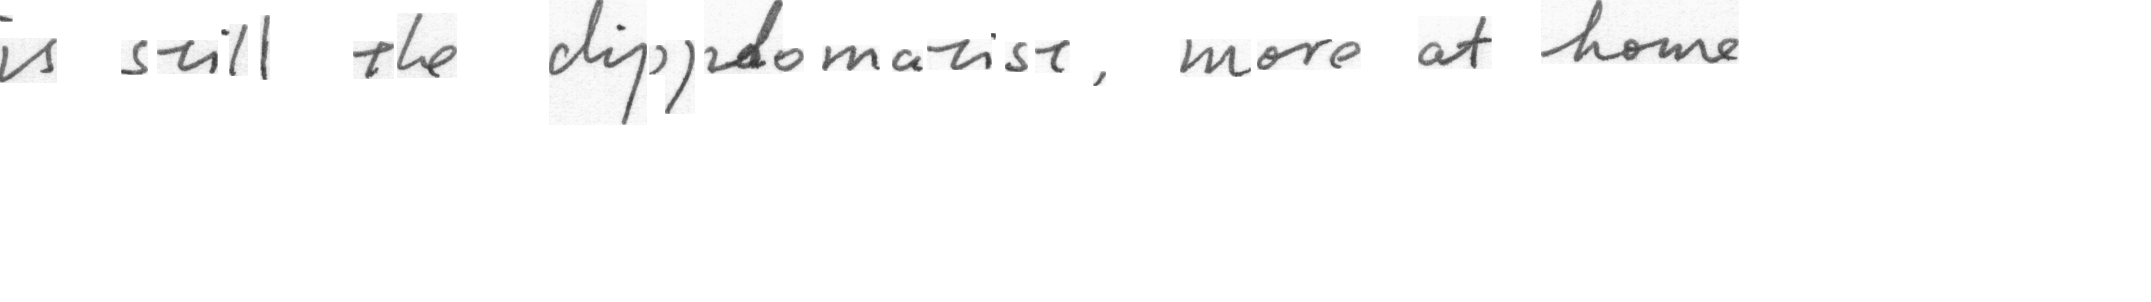 is still the dippdomatist, more at home